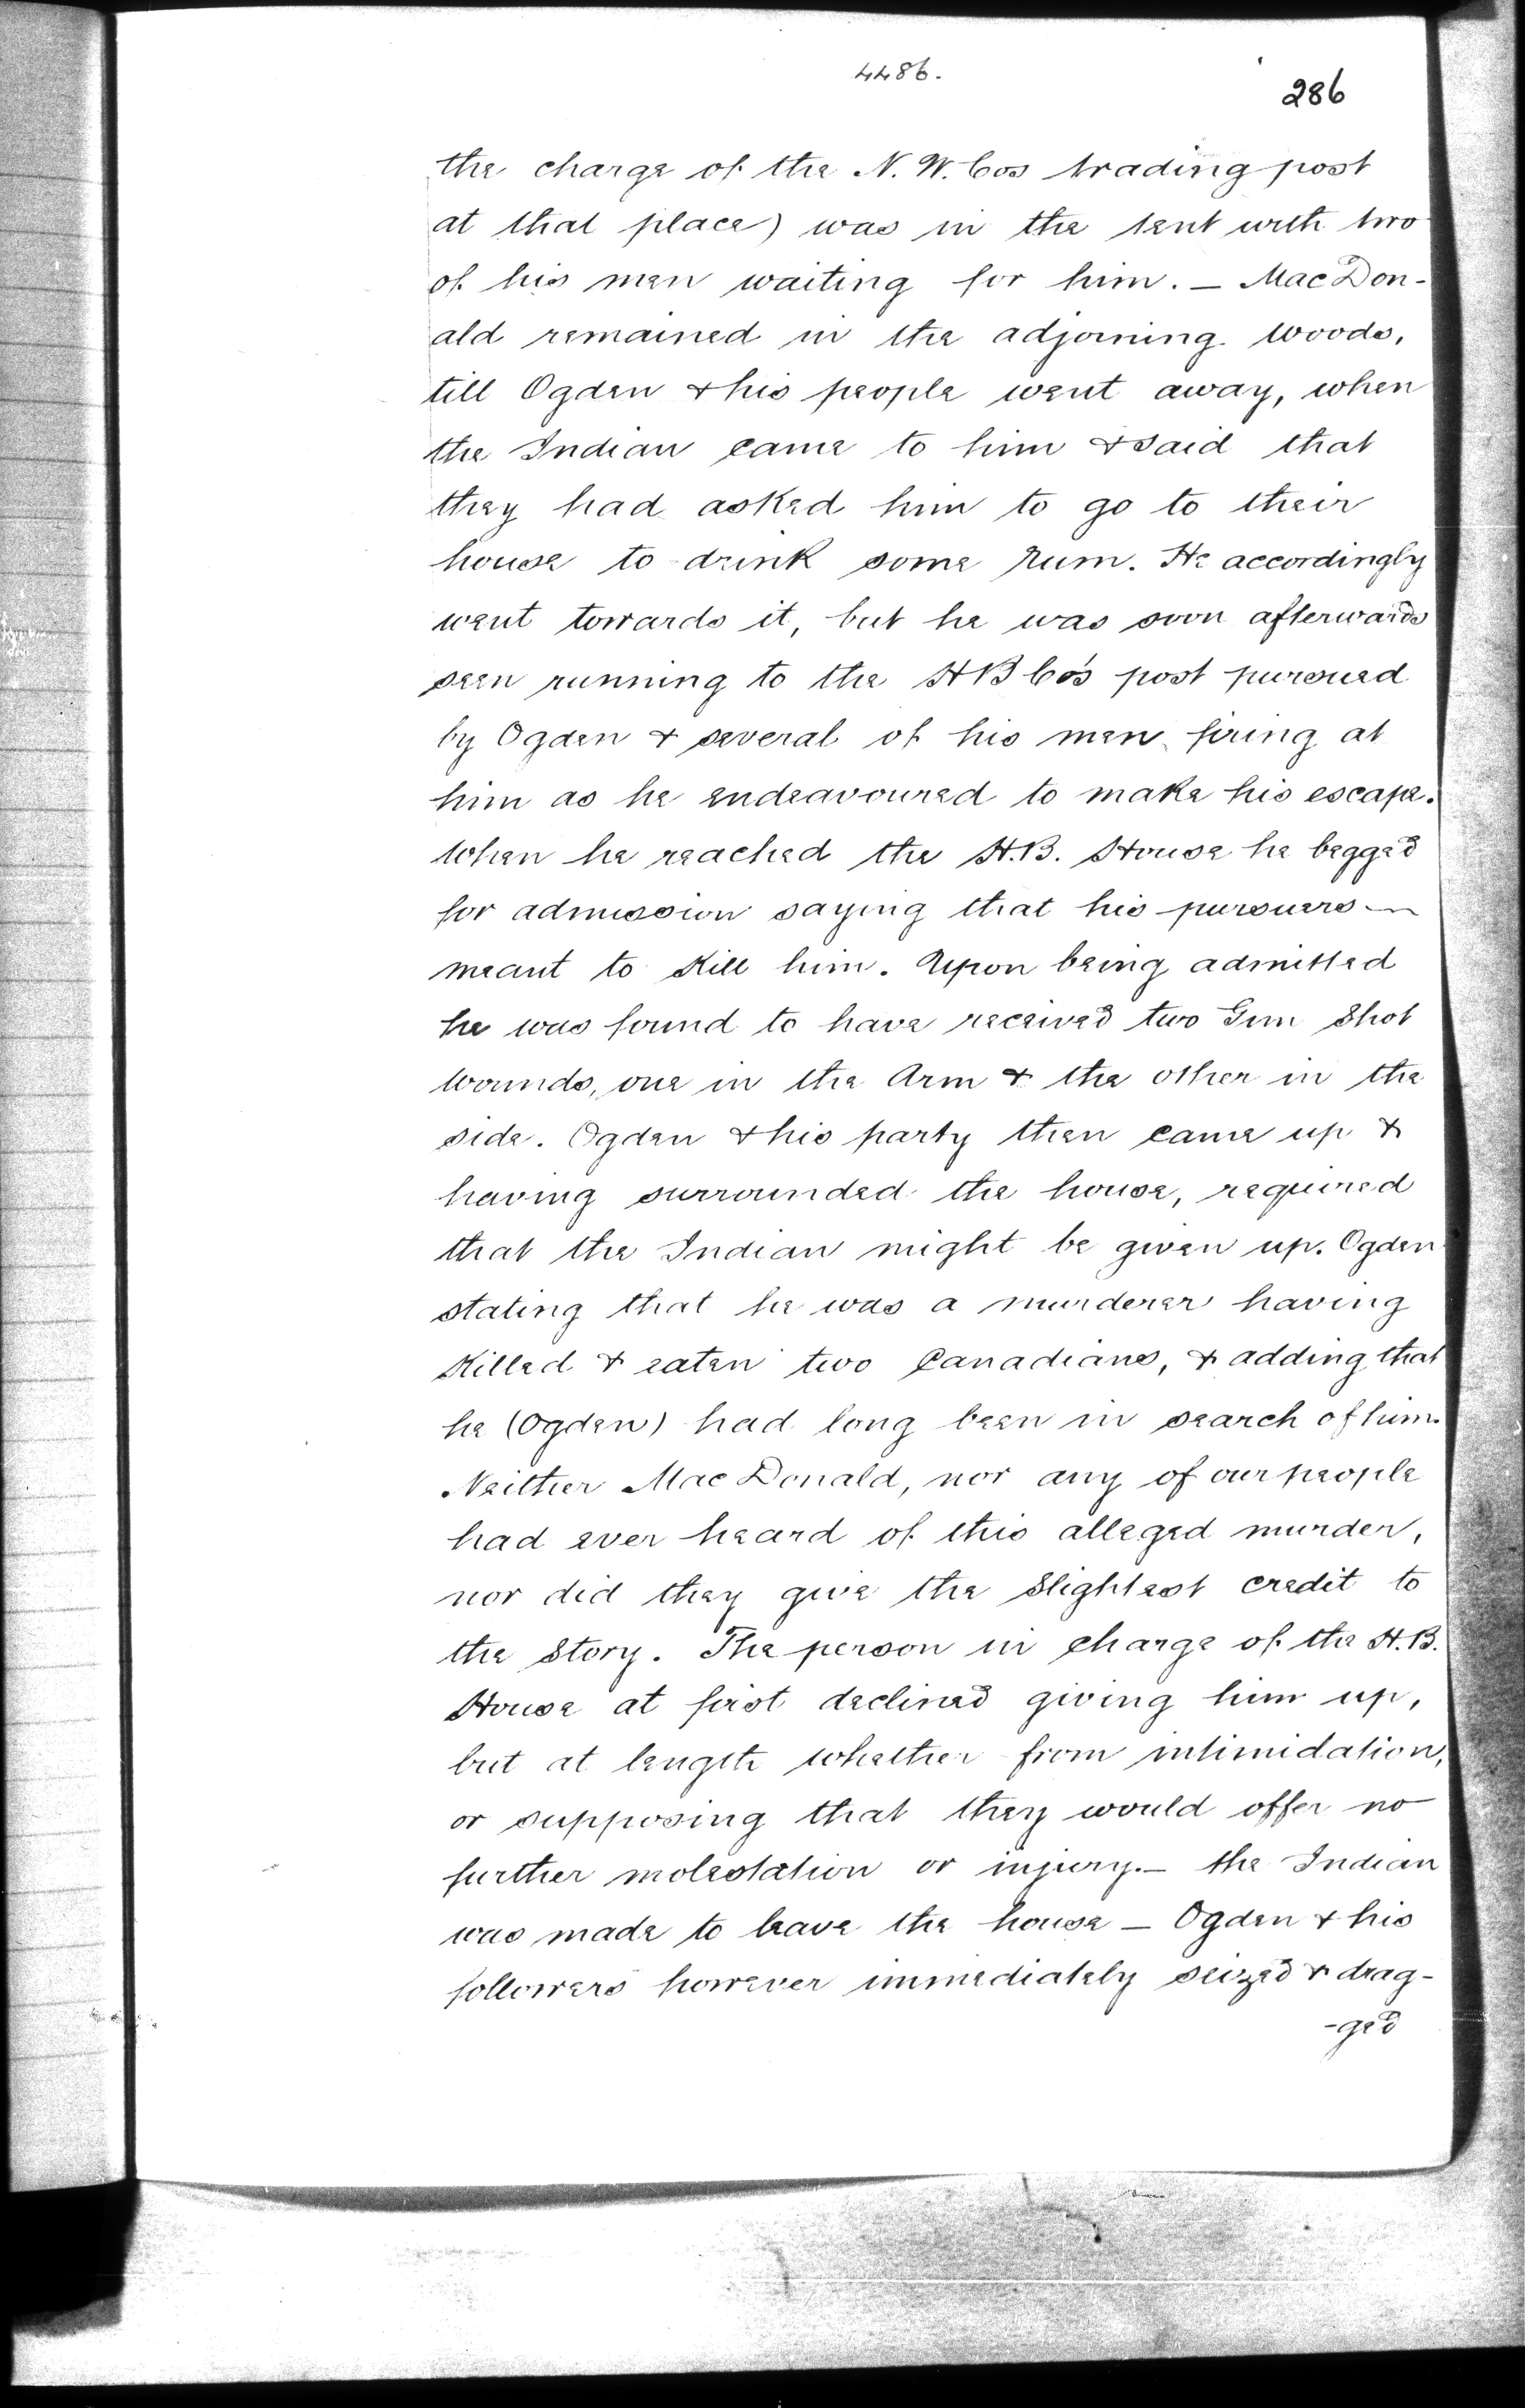 4486.
286
the charge of the N. W. Cos trading post
at that place) was in the tent with two
of his men waiting for him. — Mac Don-
ald remained in the adjoining woods,
till Ogden & his people went away, when
the Indian came to him & said that
they had asked him to go to their
house to drink some rum. He accordingly
went towards it, but he was soon afterwards
seen running to the H B Co's post pursued
by Ogden & several of his men firing at
him as he endeavoured to make his escape.
When he reached the H.B. House he begged
for admission saying that his pursuers —
meant to kill him. Upon being admitted
he was found to have received two Gun Shot
wounds, one in the Arm & the other in the
side. Ogden & his party then came up &
having surrounded the house, required
that the Indian might be given up. Ogden
stating that he was a murderer having
Killed & eaten two Canadians, & adding that
he (Ogden) had long been in search of him.
Neither Mac Donald, nor any of our people
had ever heard of this alleged murder,
nor did they give the slightest credit to
the Story. The person in charge of the H.B.
House at first declined giving him up,
but at length whether from intimidation,
or supposing that they would offer no
further molestation or injury. — the Indian
was made to leave the house — Ogden & his
followers however immediately seized & drag-
-ged